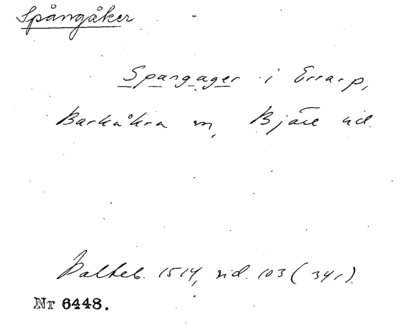 Spångåker
Spangager i Errarp,
Barkåkra sn, Bjäre hd.
Dalteb. 1514, sid. 103 (341).
Nr 6448.